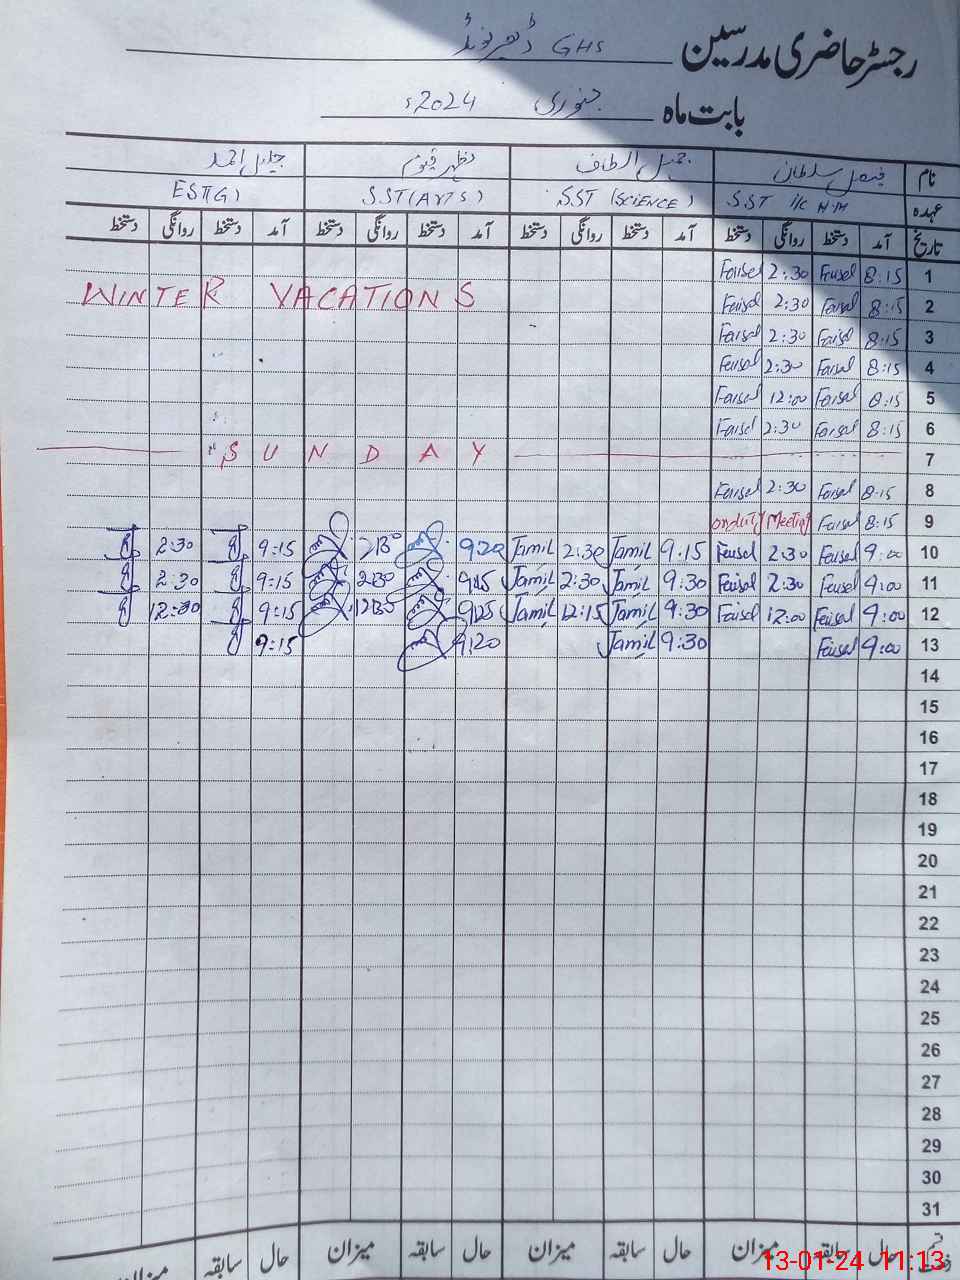 رجسٹر حاضری مدرسین GHS
بابت ماہ جنوری 2024ء
نام فیصل سلطان جمیل الطاف مظہر قیوم جلیل احمد
عہدہ SST I/C H.M SST (SCIENCE) SST (ARTS) EST(G)
تاریخ آمد دستخط روانگی دستخط آمد دستخط روانگی دستخط آمد دستخط روانگی دستخط آمد دستخط روانگی دستخط
1 8:15 Faisal 2:30 Faisal
WINTER VACATIONS
2 8:15 Faisal 2:30 Faisal
3 8:15 Faisal 2:30 Faisal
4 8:15 Faisal 2:30 Faisal
5 8:15 Faisal 12:00 Faisal
6 8:15 Faisal 2:30 Faisal
7 SUNDAY
8 8:15 Faisal 2:30 Faisal
9 8:15 Faisal onduty Meeting
10 9:00 Faisal 2:30 Faisal 9:15 Jamil 2:30 Jamil 9:20 2:30 9:15 2:30
11 9:00 Faisal 2:30 Faisal 9:30 Jamil 2:30 Jamil 9:15 2:30 9:15 2:30
12 9:00 Faisal 12:00 Faisal 9:30 Jamil 12:15 Jamil 9:25 12:35 9:15 12:30
13 9:00 Faisal 9:30 Jamil 9:20 9:15
14
15
16
17
18
19
20
21
22
23
24
25
26
27
28
29
30
31
حال سابقہ میزان حال سابقہ میزان حال سابقہ میزان حال سابقہ میزان
13-01-24 11:13